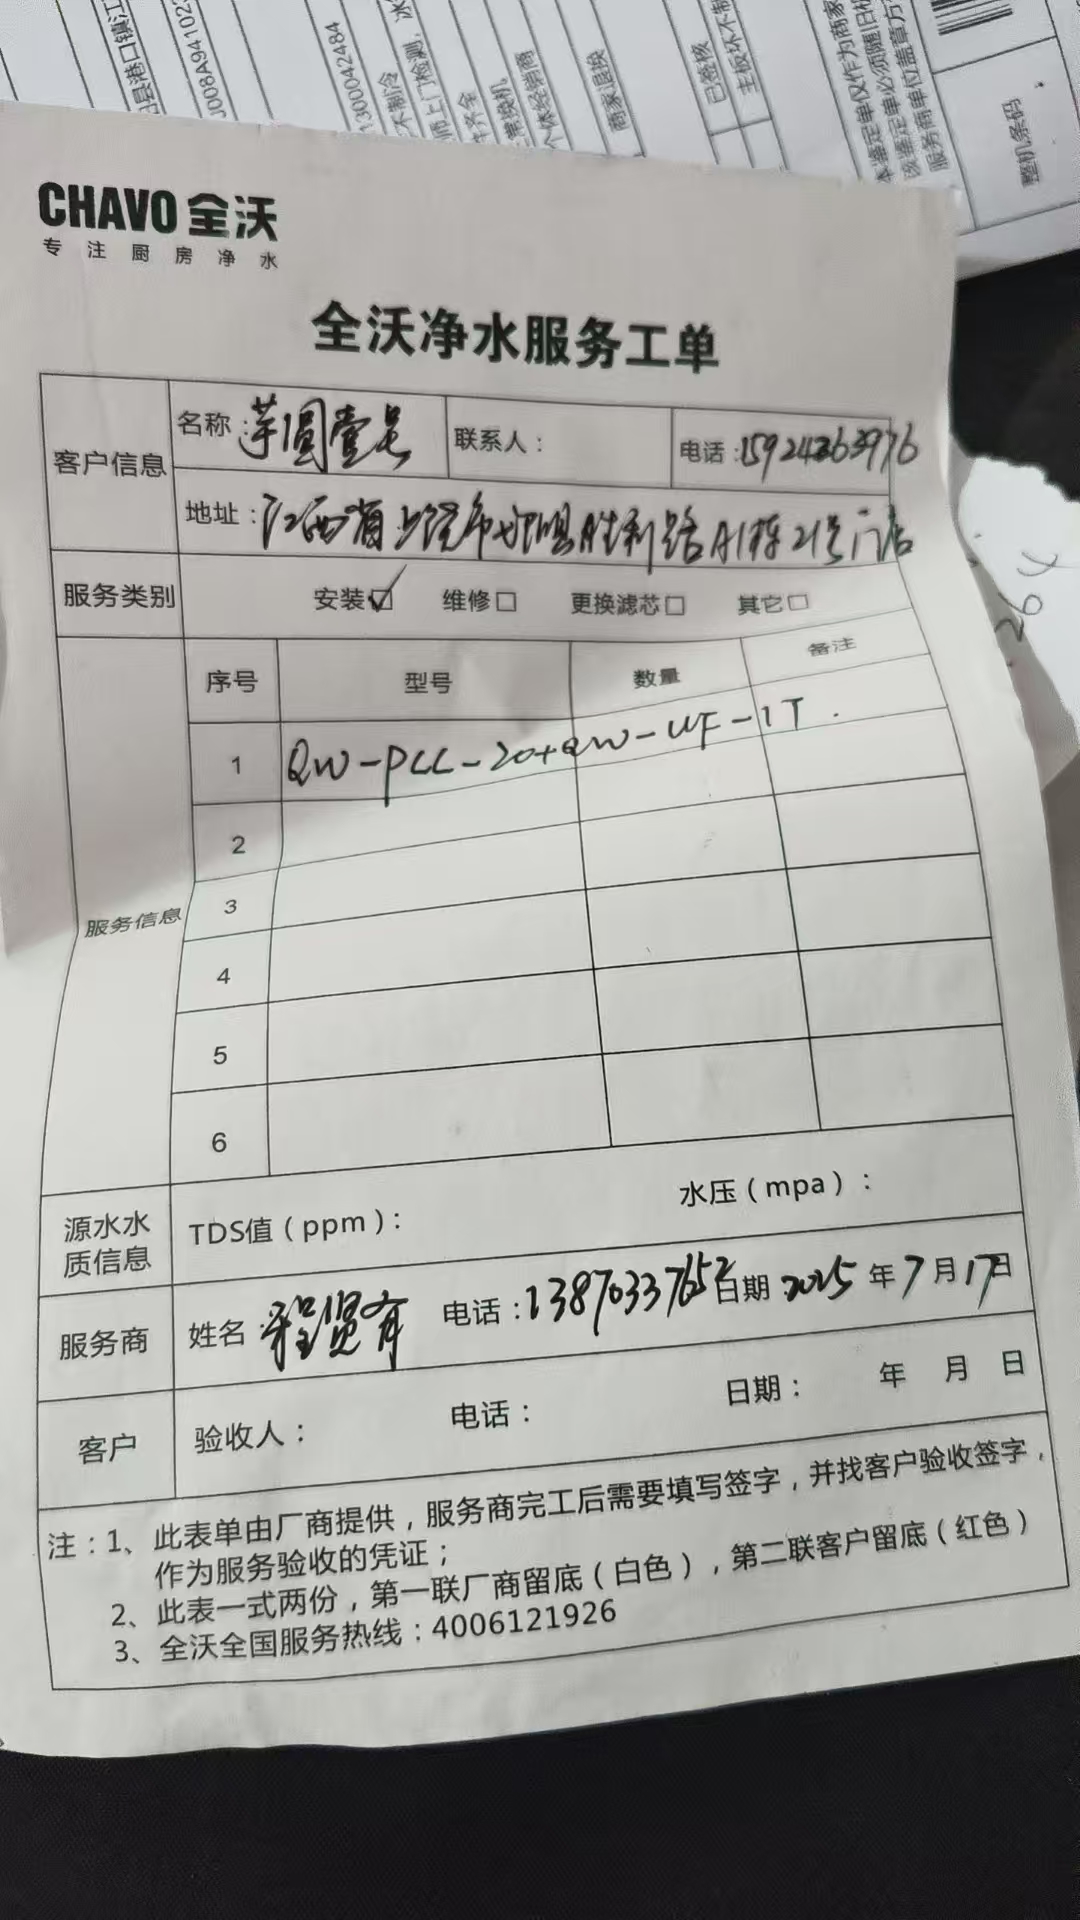 CHAVO 全沃
专注厨房净水
全沃净水服务工单
客户信息 名称：芋圆壹号 联系人： 电话：15924363976
地址：江西省上饶市 胜利路A1栋21号门店
服务类别 安装☑ 维修□ 更换滤芯□ 其它□
服务信息 序号 型号 数量 备注
1 QW-PCC-20+QW-UF-1T.
2
3
4
5
6
源水水质信息 TDS值（ppm）： 水压（mpa）：
服务商 姓名：程贤有 电话：13870337652 日期：2025年7月17日
客户 验收人： 电话： 日期： 年 月 日
注：1、此表单由厂商提供，服务商完工后需要填写签字，并找客户验收签字，
作为服务验收的凭证；
2、此表一式两份，第一联厂商留底（白色），第二联客户留底（红色）
3、全沃全国服务热线：4006121926
县港口镇江
J008A94102
1300042484
不制冷
师上门检测，冰
件齐全
个体经销商
商家退换
已签核
主板坏不制
本鉴定单仅作为商家
该鉴定单必须随旧
服务商单位盖章方
整机条码